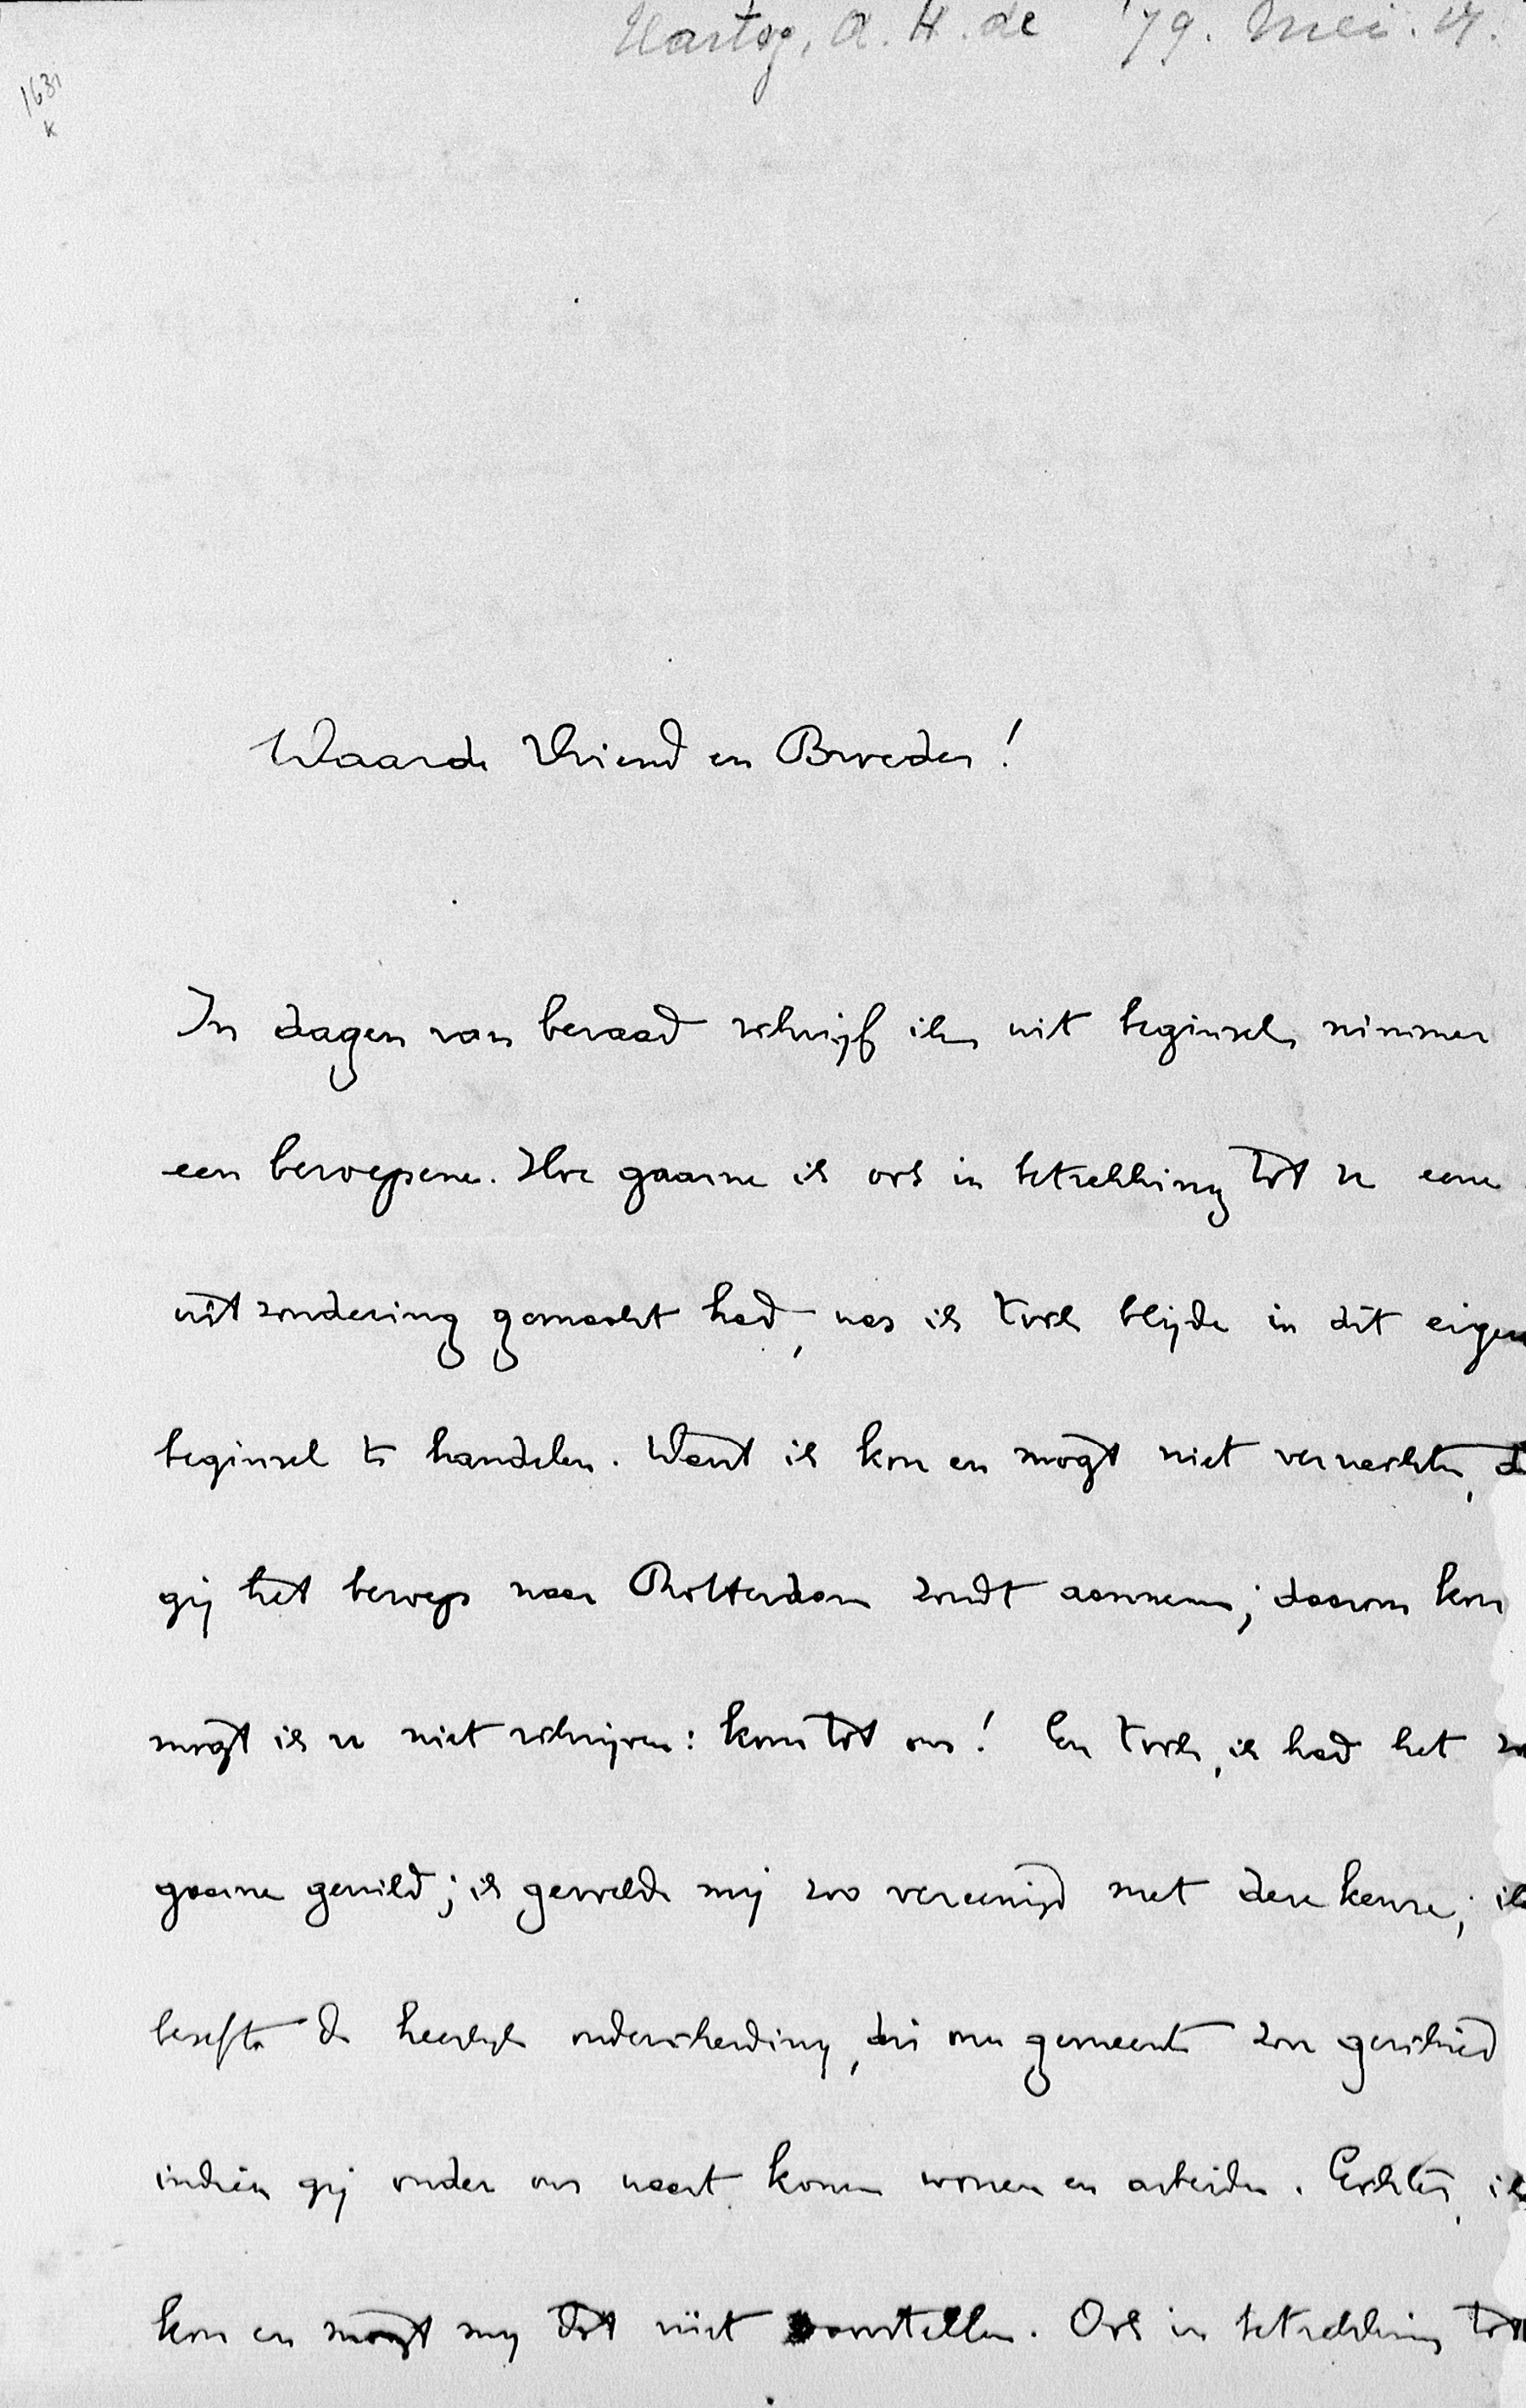 Hartog, A. H. de '79. Mei. 17.
1631
K
Waarde Vriend en Broeder!
In dagen van beraad schrijf ik uit beginsel nimmer
een beroepene. Hoe gaarne ik ook in betrekking tot u eene
uitzondering gemaakt had, was ik toch blijde in dit eigen
beginsel te handelen. Want ik kon en mogt niet verwachten, d
gij het beroep naar Rotterdam zoudt aannemen; daarom kon
mogt ik u niet schrijven: kom tot ons! En toch, ik had het zo
gaarne gewild; ik gevoelde mij zoo vereenigd met deze keuze; ik
besefte de heerlijke onderscheiding, die onze gemeente zou geschied
indien gij onder ons waart komen wonen en arbeiden. Echter, ik
kon en mogt mij dit niet voorstellen. Ook in betrekking tot